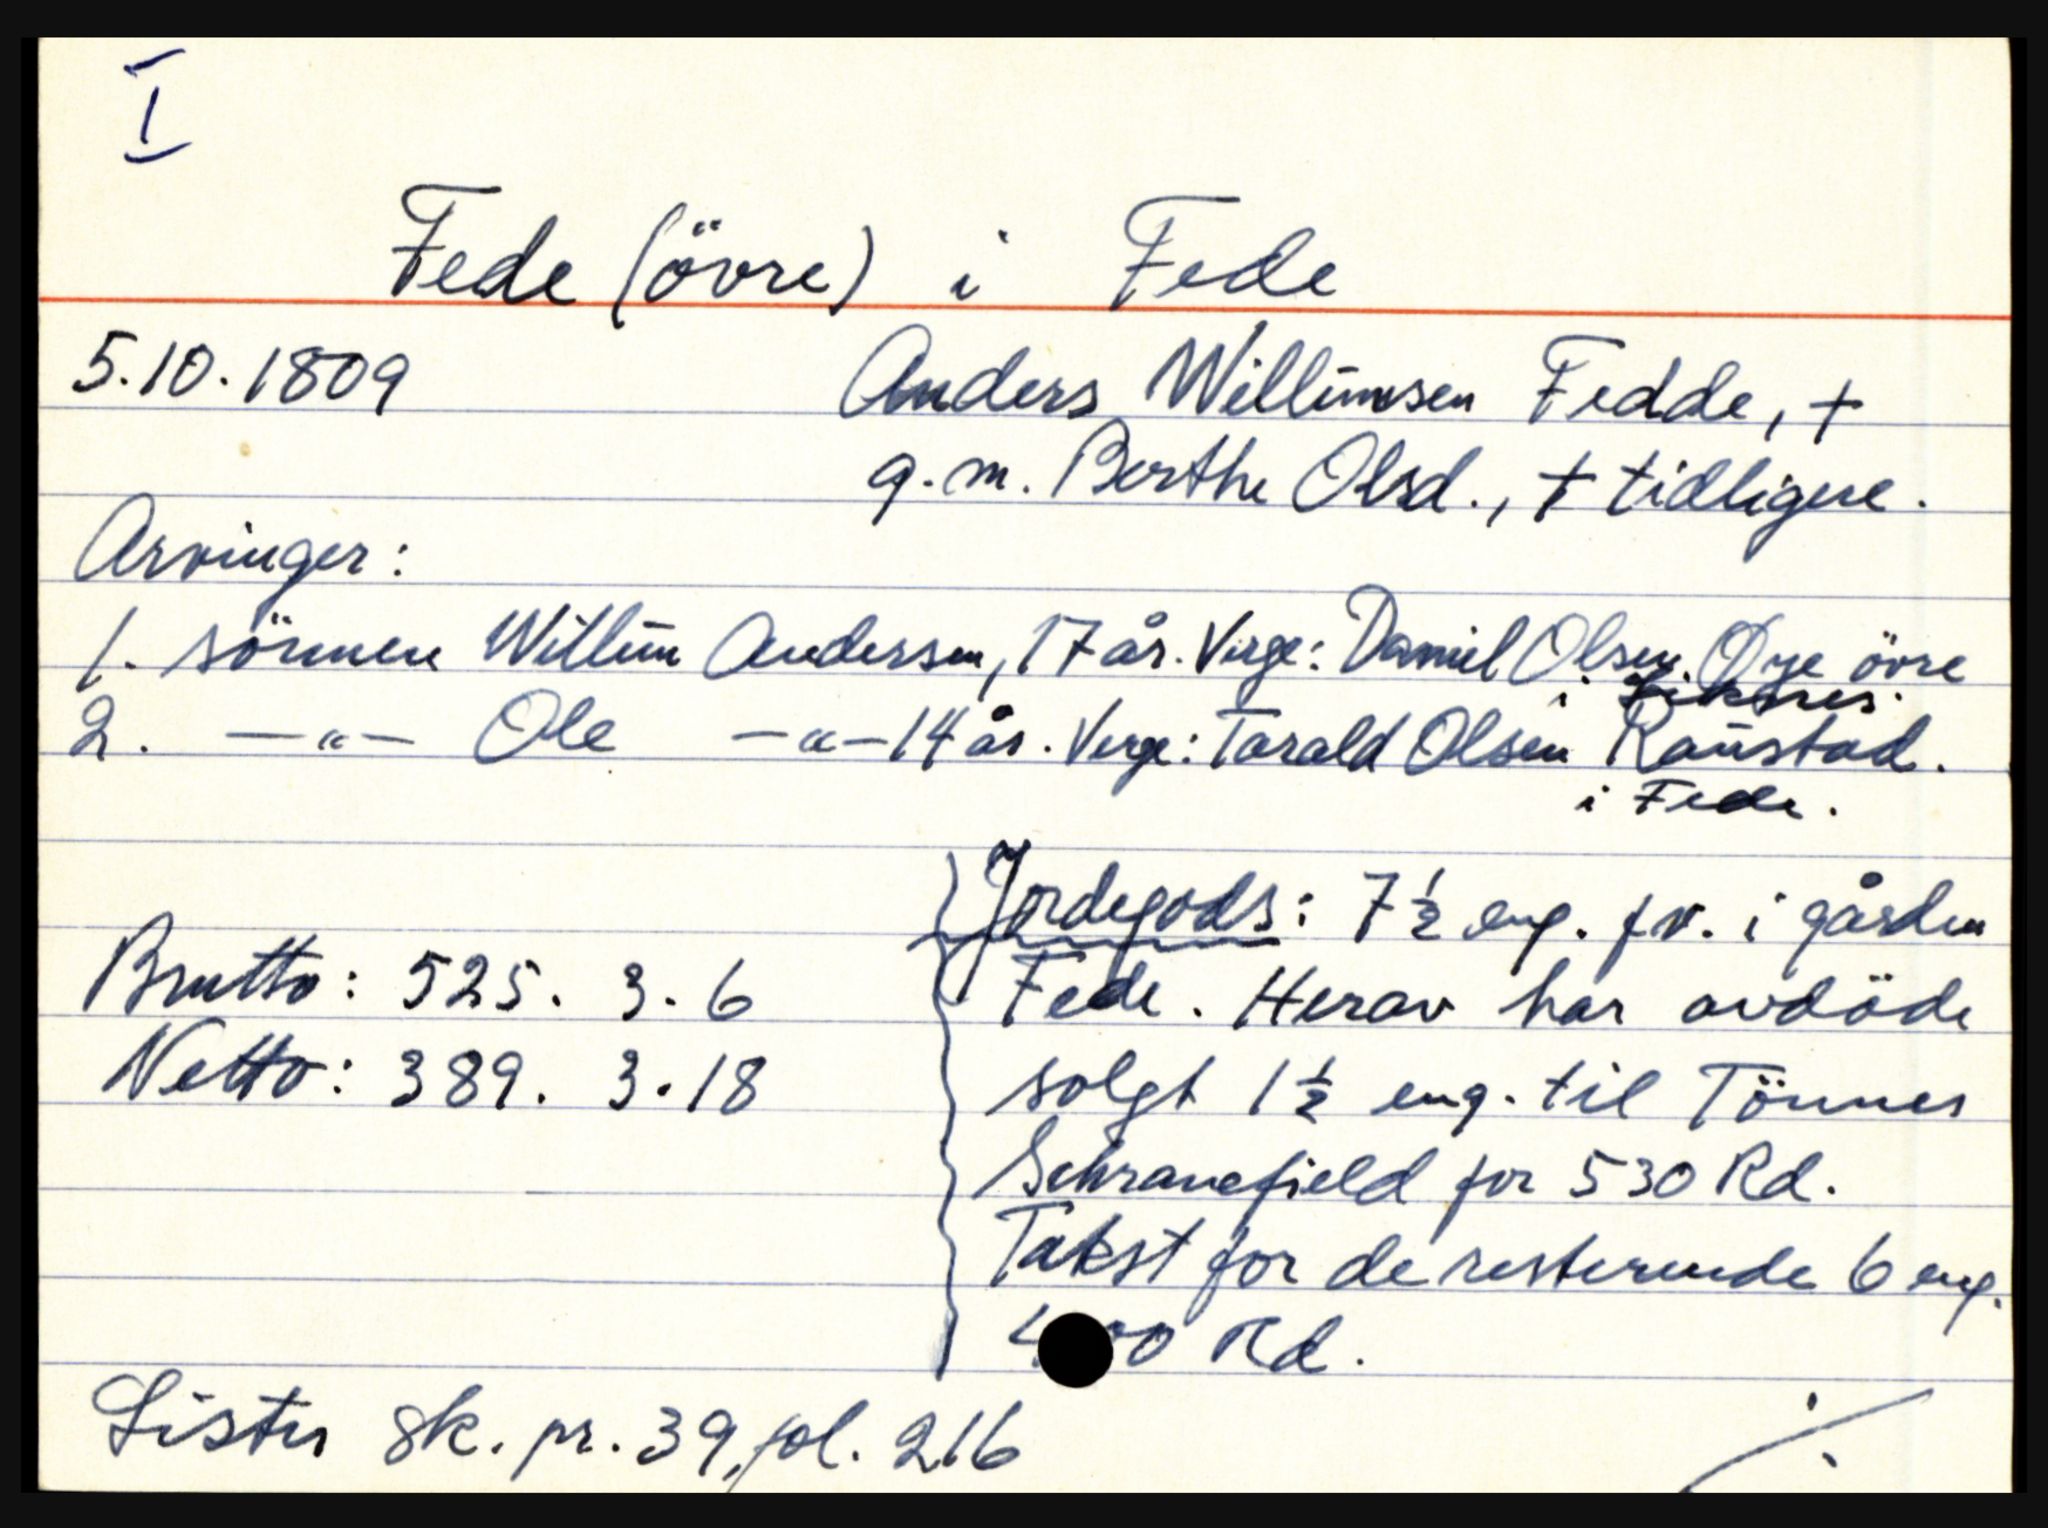 I
Fede (övre) i Fede
5.10.1809 Anders Willumsen Fedde, †
g.m. Berthe Olsd., † tidligere.
Arvinger:
1. sönnen Willum Andersen, 17 år. Verge: Daniel Olsen Øye övre
i
2. —"— Ole —"— 14 år. Verge: Tarald Olsen Raustad.
i Fede.
Jordegods: 7½ eng. fv. i gården
Brutto: 525. 3. 6 Fede. Herav har avdöde
Netto: 389. 3. 18 solgt 1½ eng. til Tönnes
Schranefield for 530 Rd.
Takst for de resterende 6 eng.
Rd.
Lister sk. pr. 39, fol. 216
./.